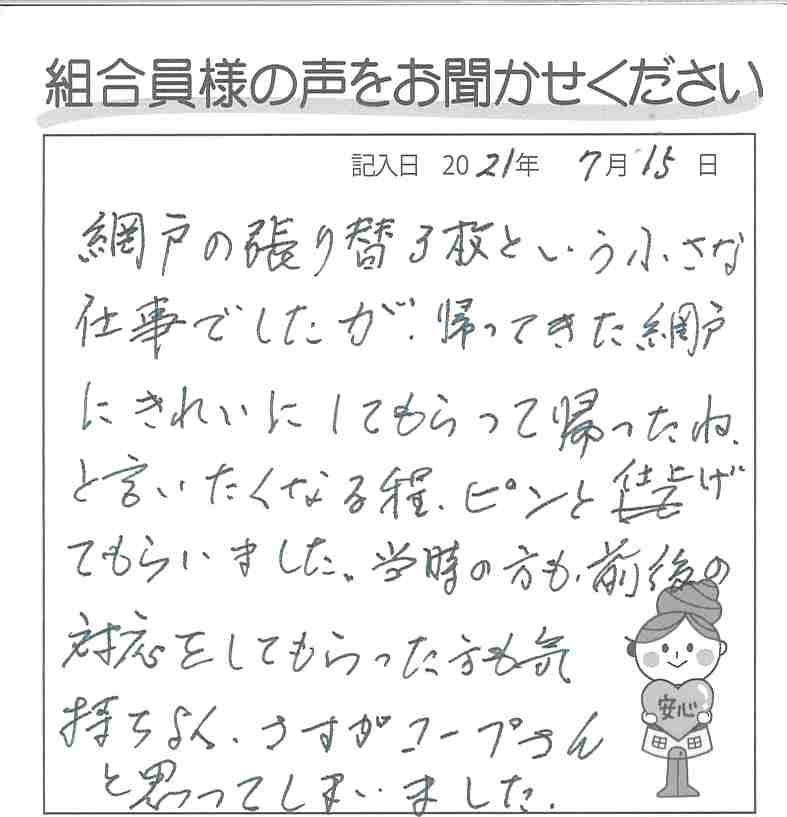 組合員様の声をお聞かせください
記入日 2021年 7月15日
網戸の張り替3枚という小さな
仕事でしたが、帰ってきた網戸
にきれいにしてもらって帰ったね、
と言いたくなる程、ピンと仕上げ
てもらいました。当時の方も、前後の
対応をしてもらった方も気
持ちよく、さすがコープさん
と思ってしまいました。
安心